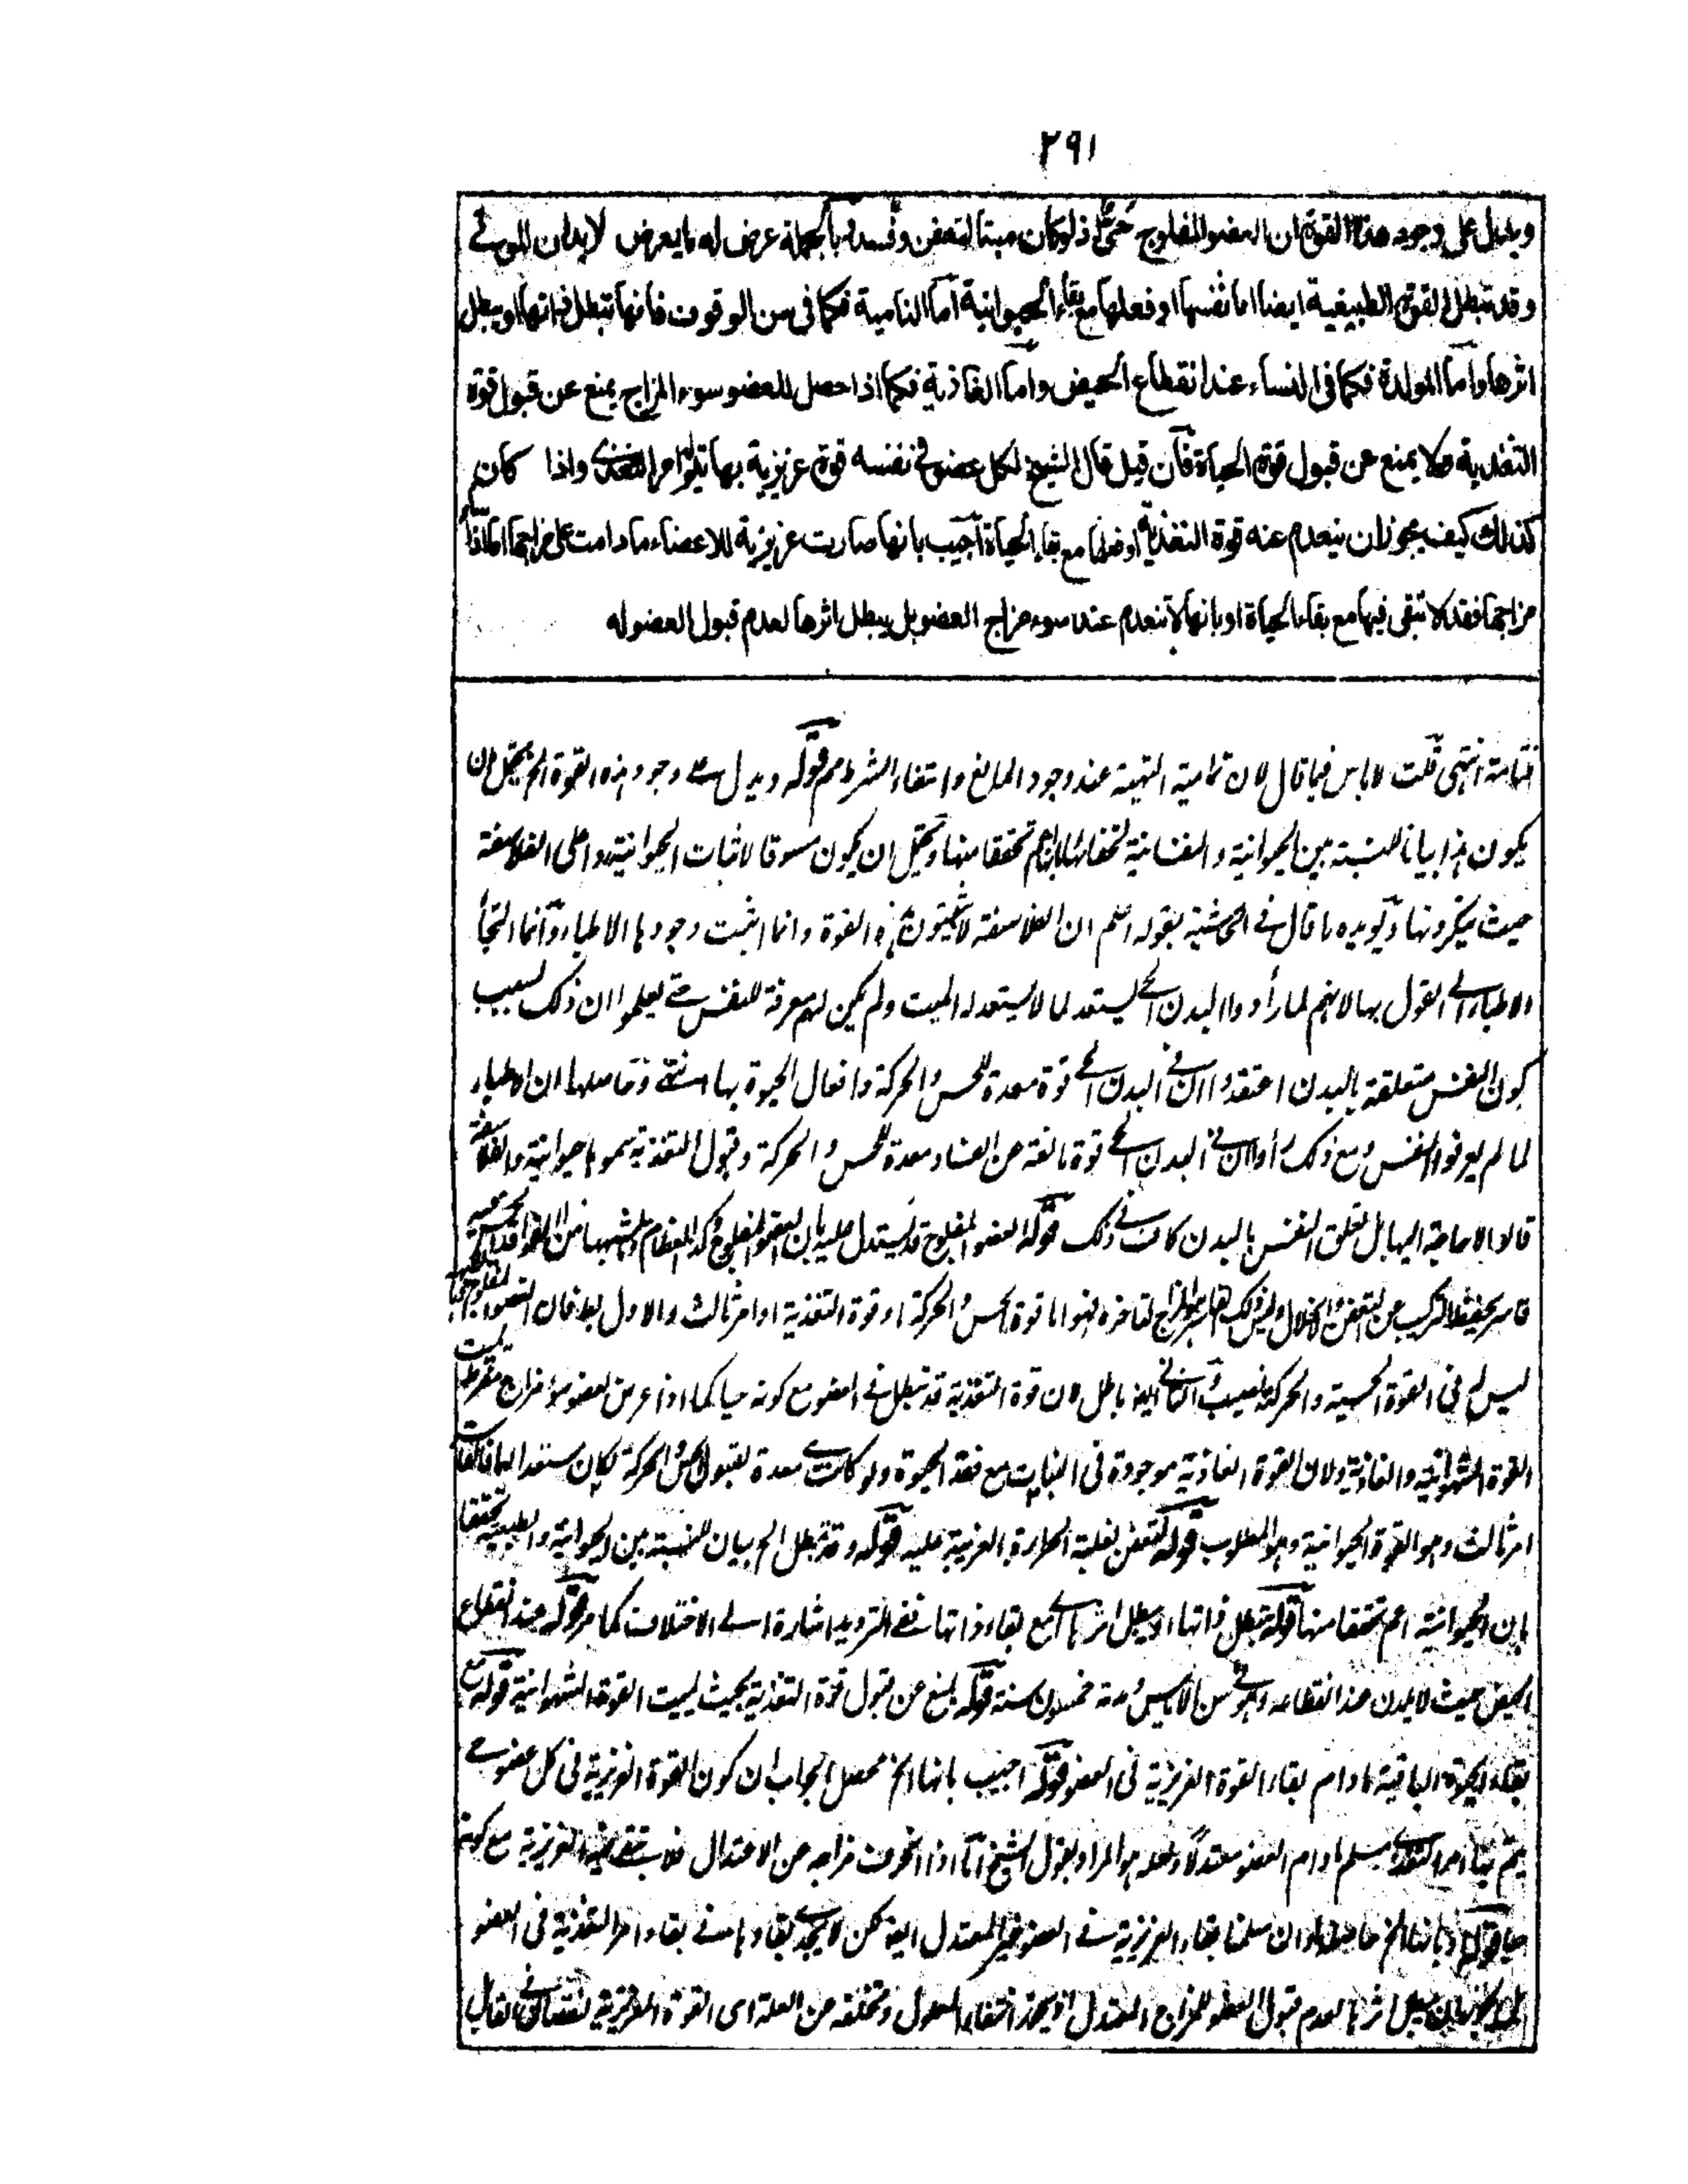 ٢٩١
ويدل على وجود هذه القوة ان العضو المفلوج حى اذ لو كان ميتا لتعفن وفسد وبالجملة عرض له ما يعرض لابدان الموتى
وقد تبطل القوة الطبيعية ايضا اما نفسها او فعلها مع بقاء الحيوانية اما النامية فكما فى سن الوقوف فانها تبطل ذاتها او يبطل
اثرها واما المولدة فكما فى النساء عند انقطاع الحيض واما الغاذية فكما اذا حصل للعضو سوء المزاج يمنع عن قبول قوة
التغذية ولا يمنع عن قبول قوة الحياة فان قيل قال الشيخ لكل عضو فى نفسه قوة غريزية بها يتم امر التغذى واذا كان
كذلك كيف يجوز ان ينعدم عنه قوة التغذية او فعلها مع بقاء الحياة اجيب بانها صارت غريزية للاعضاء ما دامت على مزاجها اما اذا
مزاجها فقد لا تبقى فيها مع بقاء الحياة او بانها لا تنعدم عند سوء مزاج العضو بل يبطل اثرها لعدم قبول العضو له
انتهى قلت لا باس فيما قال لان تمامية التهيئة عند وجود المانع وانتفاء الشرط مم قوله ويدل على وجود هذه القوة الخ يحتمل ان
يكون هذا بيانا للنسبة بين الحيوانية والنفسانية تحققا بانها اعم تحققا منها ويحتمل ان يكون مسوقا لاثبات الحيوانية ردا على الفلاسفة
حيث ينكرونها ويؤيده ما قال فى الحاشية بقوله اعلم ان الفلاسفة لا يثبتون هذه القوة وانما اثبت وجودها الاطباء وانما التجأ
الاطباء الى القول بها لانهم لما رأوا البدن الحى يستعد لما لا يستعد له الميت ولم يكن لهم معرفة للنفس حتى يعلموا ان ذلك بسبب
كون النفس متعلقة بالبدن اعتقدوا ان فى البدن الحى قوة معدة للحس والحركة وافعال الحيوة بها انتهى وحاصلها ان الاطباء
لما لم يعرفوا النفس ومع ذلك رأوا ان فى البدن الحى قوة مانعة عن الفساد ومعدة للحس والحركة وقبول التغذية سموها حيوانية والفلاسفة
قالوا لا حاجة اليها بل تعلق النفس بالبدن كاف فى ذلك قوله العضو المفلوج قد يستدل عليه بان العضو المفلوج وكذا العظام
قاسر يحفظ التركيب عن التعفن والانحلال وليس ذلك المزاج لتاخره فهو اما قوة الحس والحركة او قوة التغذية او امر ثالث والاول بط فان العضو المفلوج
ليس له فى القوة الحسية والحركة نصيب والثانى ايضا باطل لان قوة التغذية قد تبطل فى العضو مع كونه حيا كما اذا عرض للعضو سوء مزاج مفرط
القوة الشهوانية والغاذية ولان القوة الغاذية موجودة فى النبات مع فقد الحيوة ولو كانت معدة لقبول الحس والحركة لكان مستعدا لهما
امر ثالث وهو القوة الحيوانية وهو المطلوب قوله لتعفن لغلبة الحرارة الغريبة عليه قوله وقد تبطل الخ بيان للنسبة بين الحيوانية والطبيعية تحققا
بان الحيوانية اعم تحققا منها قوله تبطل ذاتها او يبطل اثرها مع بقاء ذاتها ففى الترديد اشارة الى الاختلاف كما مر قوله عند انقطاع
الحيض حيث لا يلدن عند انقطاعه وهو فى سن الاياس ومدته خمسون سنة قوله يمنع عن قبول قوة التغذية بحيث يميت القوة الشهوانية قوله مع
بقاء الحيوة الباقية ما دام بقاء القوة الغريزية فى العضو قوله اجيب بانها الخ محصل الجواب ان كون القوة الغريزية فى كل عضو حتى
يتم بها امر التغذى مسلم ما دام العضو معتدلا ولعله هو المراد بقول الشيخ اما اذا انحرف مزاجه عن الاعتدال فلا تبقى فيه الغريزية مع كونه
حيا قوله او بانها الخ حاصله ان سلمنا بقاء الغريزية فى العضو الغير المعتدل ايضا لكن لا يجدى بقاؤها فى بقاء امر التغذية فى العضو
اثرها لعدم قبول العضو للمزاج المعتدل اذ يجوز انتفاء المعلول وتخلفه عن العلة اى القوة الغريزية لنقصان فى القابل